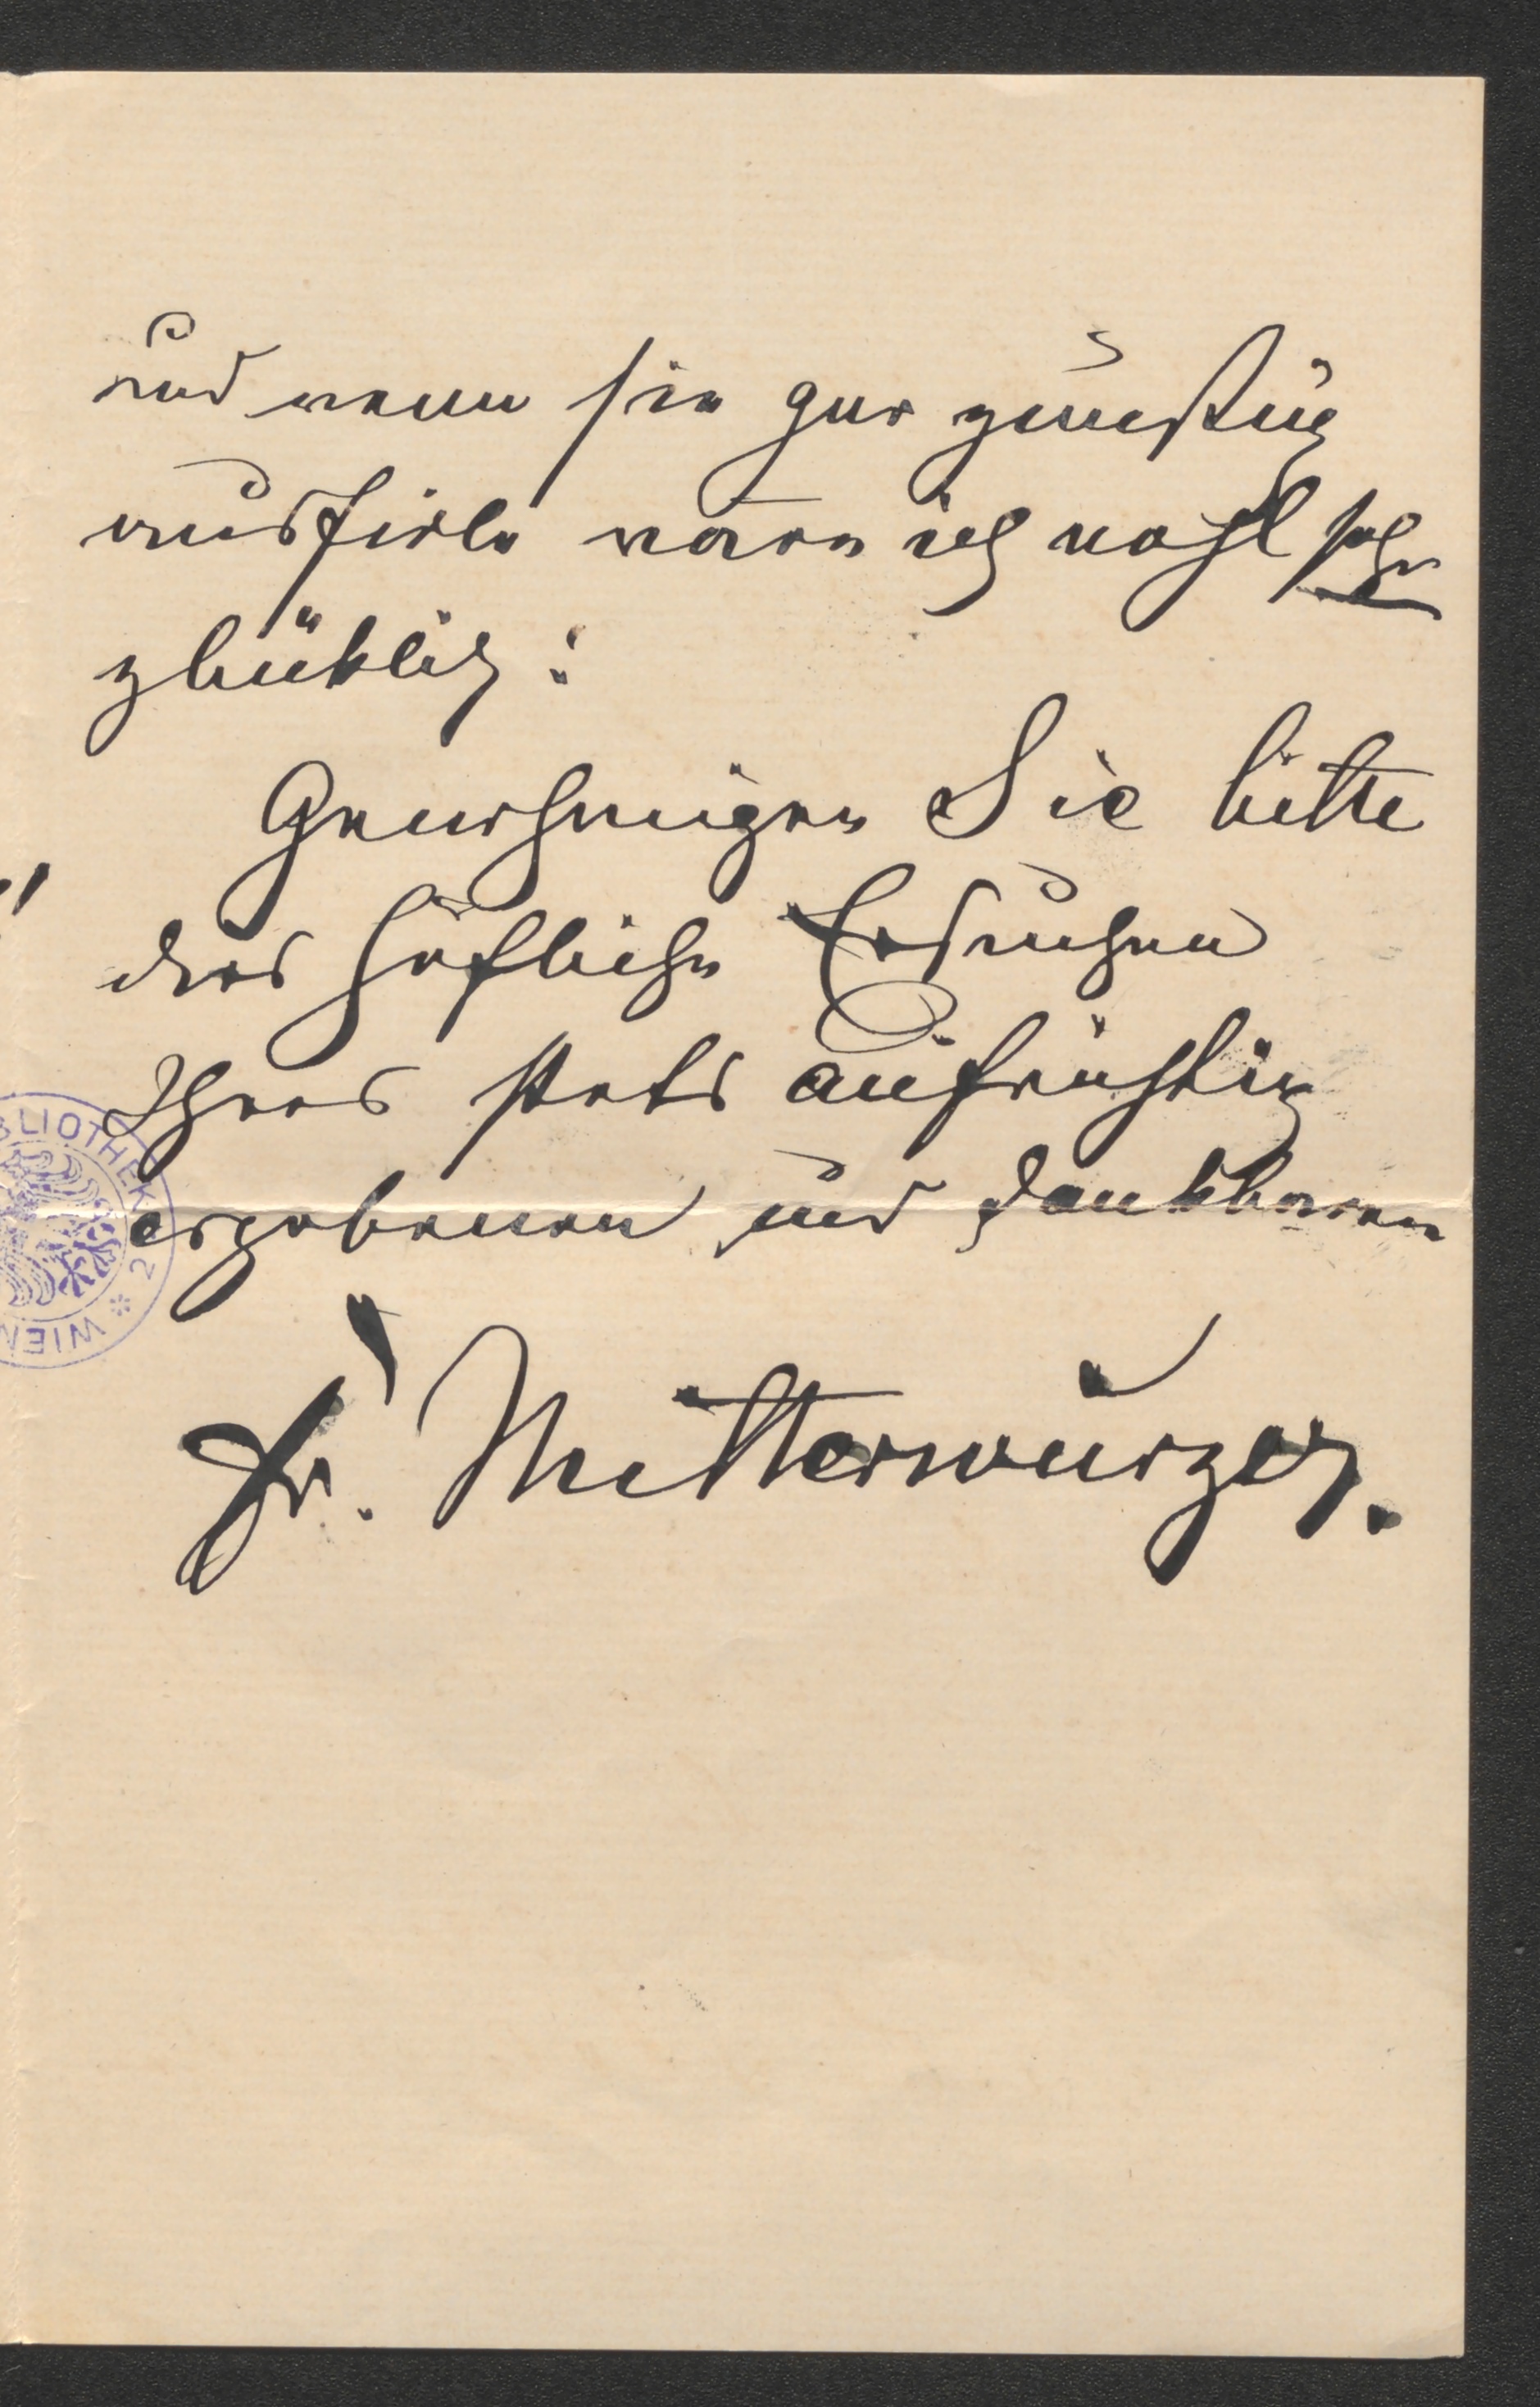 und wenn sie gar günstig
ausfiele wäre ich wohl sehr
glüklich!
Genehmigen Sie bitte
dies höfliche Ersuchen
Ihres stets aufrichtig
ergebenen und dankbaren
Fr. Mitterwurzer.
BLIOTHEK
WIEN